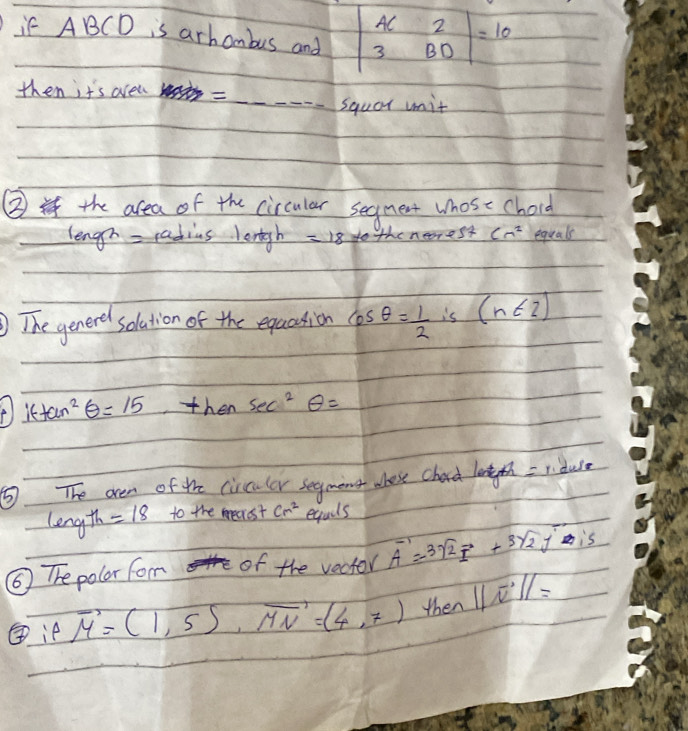 if ABCD is arhombus and | AC 2 | = 10
| 3 BD |
then it's area = ------ squar unit
② the area of the circular segment whose chord
length = radius length = 18 to the neerest cm² equals
③ The generel solution of the equaation cos θ = 1/2 is (n ∈ Z)
④ if tan² θ = 15 then sec² θ =
⑤ The area of the circular segment whose chord length = ridus
length = 18 to the nearest cm² equels
⑥ The polor form of the vector A = 3√2 i + 3√2 j is
⑦ if M = (1, 5), MN = (4, 7) then ||N|| =